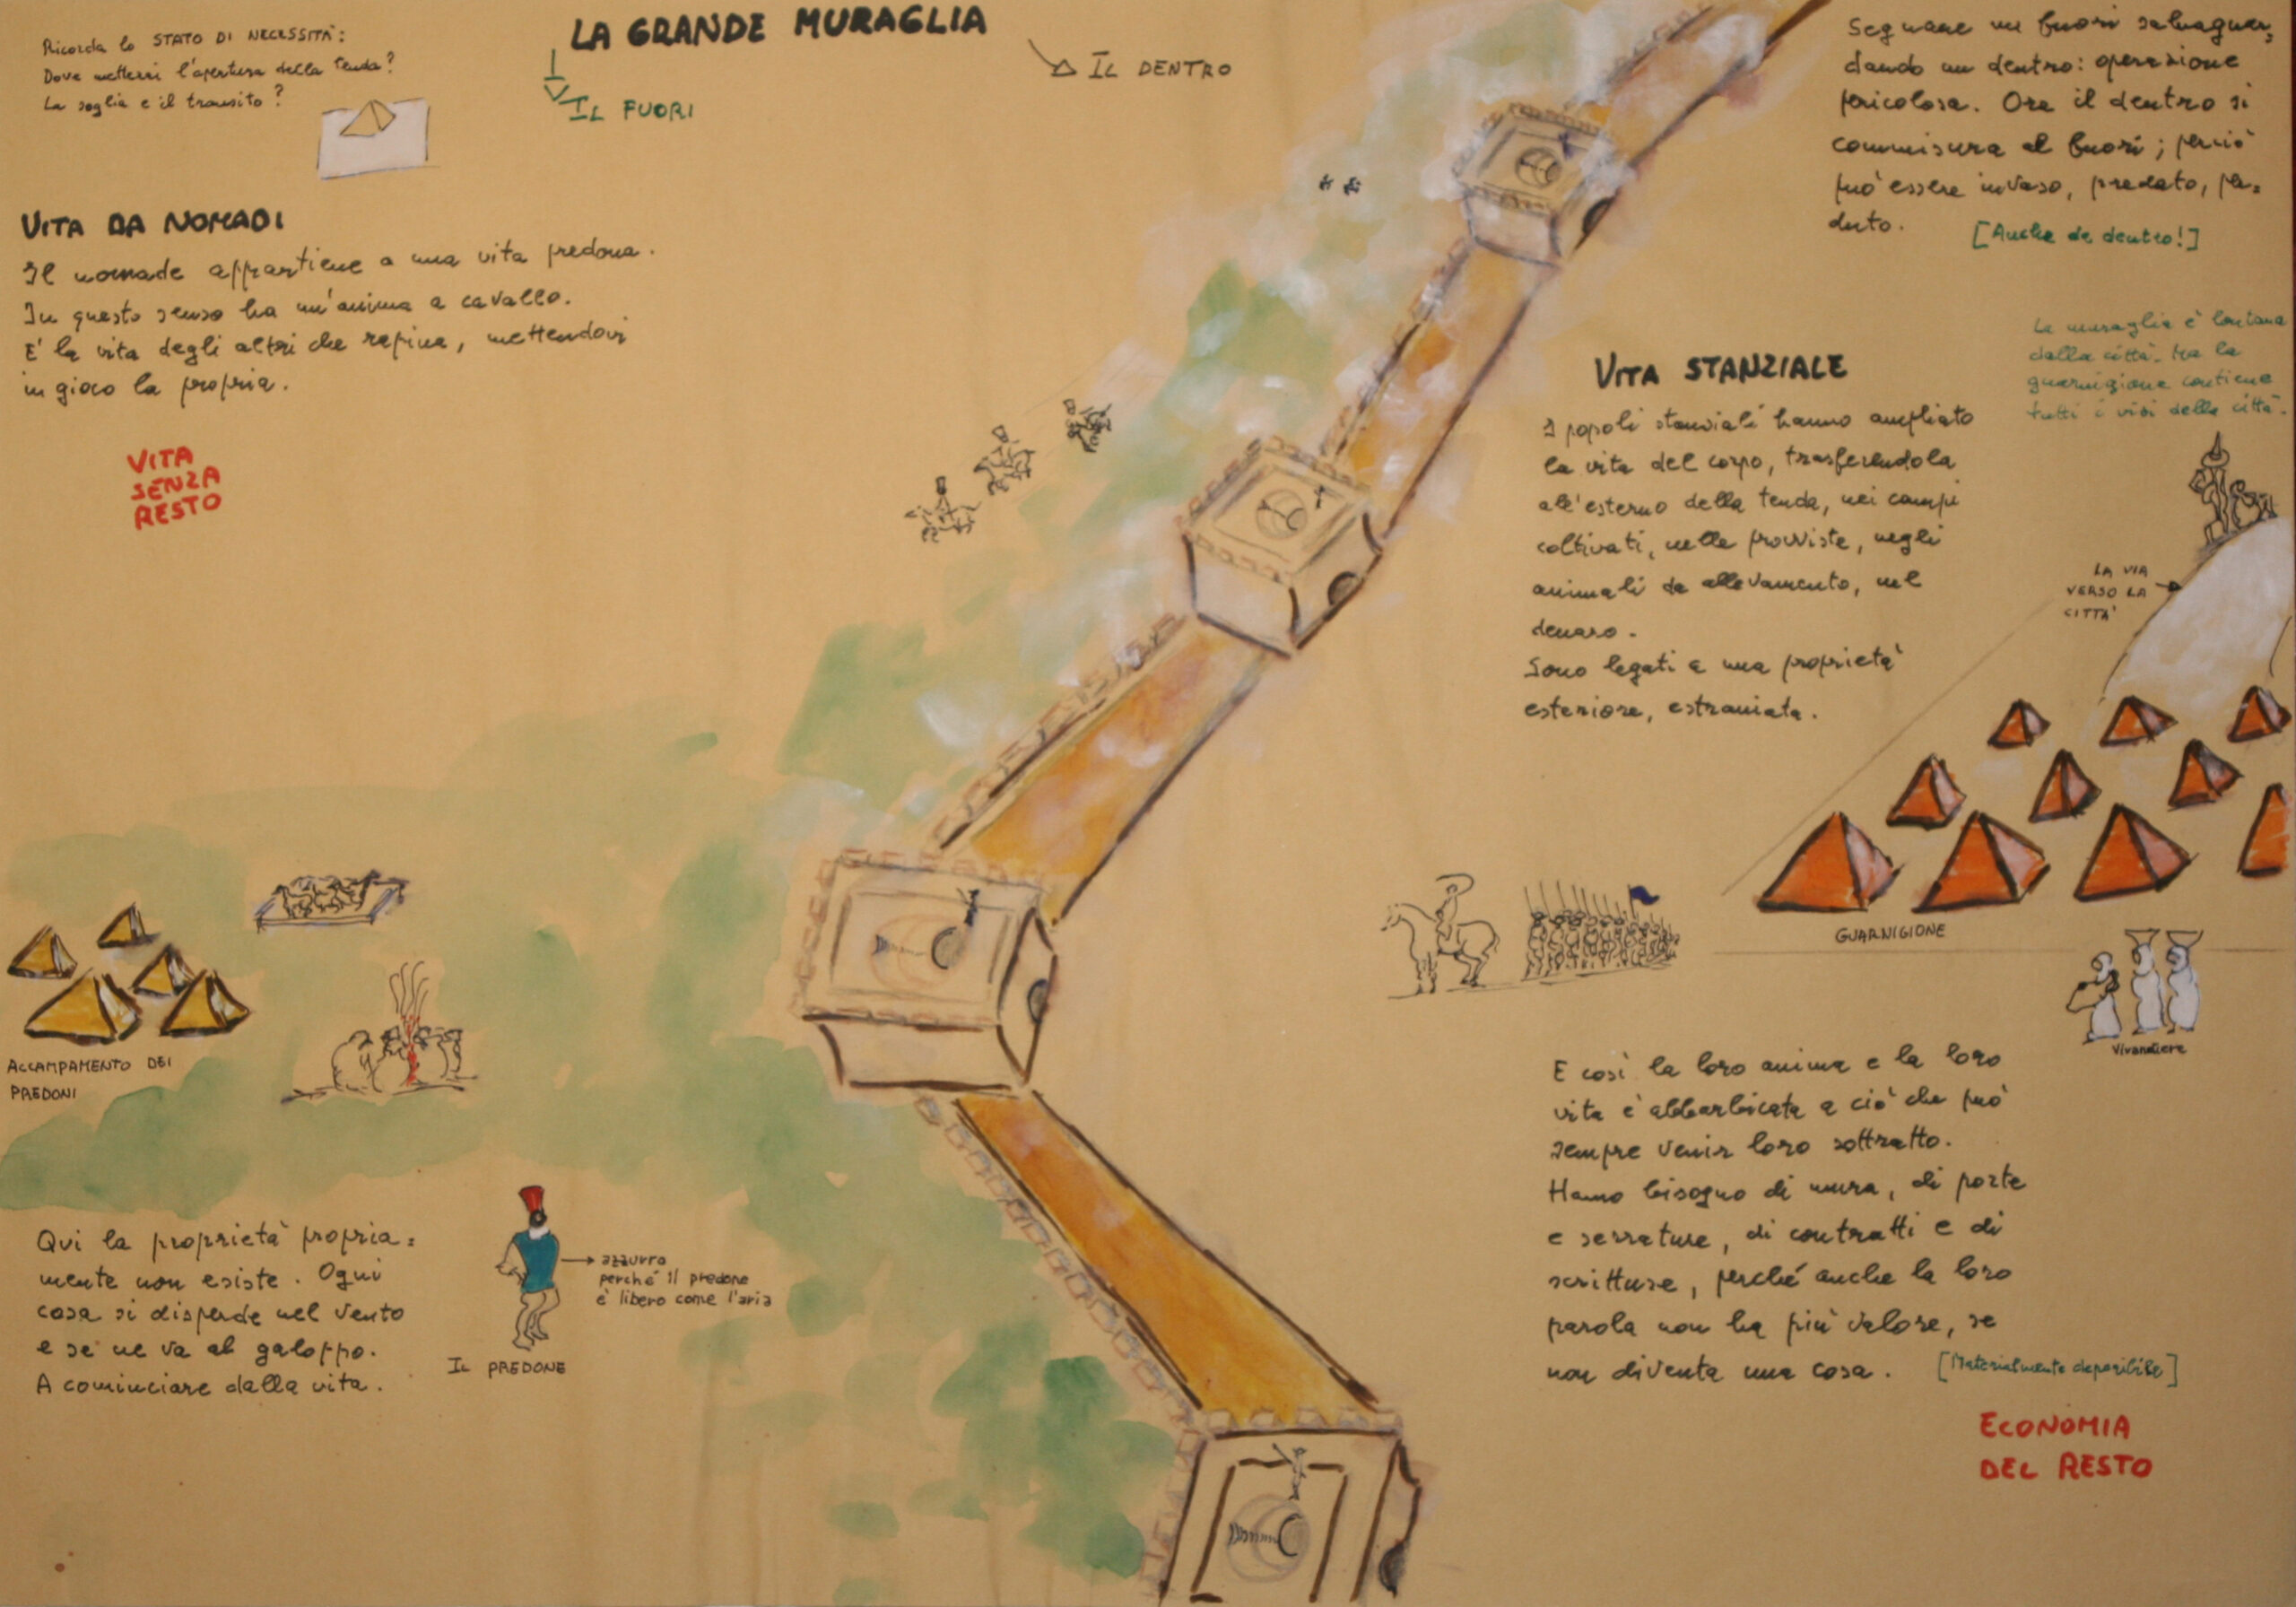 LA GRANDE MURAGLIA
IL FUORI
IL DENTRO
Ricorda lo STATO DI NECESSITÀ:
Dove mettersi l'apertura della tenda?
La soglia e il transito?
VITA DA NOMADI
Il nomade appartiene a una vita predona.
In questo senso ha un'anima a cavallo.
E' la vita degli altri che rapina, mettendovi
in gioco la propria.
VITA
SENZA
RESTO
ACCAMPAMENTO DEI
PREDONI
Qui la proprietà propria=
mente non esiste. Ogni
cosa si disperde nel vento
e se ne va al galoppo.
A cominciare dalla vita.
IL PREDONE
azzurro
perché il predone
è libero come l'aria
Segnare un fuori salvaguar=
dando un dentro: operazione
pericolosa. Ora il dentro si
commisura al fuori; perciò
può essere invaso, predato, per=
duto.
[Anche da dentro!]
La muraglia è lontana
dalla città, ma la
guarnigione contiene
tutti i vizi della città.
VITA STANZIALE
I popoli stanziali hanno ampliato
la vita del corpo, trasferendola
all'esterno della tenda, nei campi
coltivati, nelle provviste, negli
animali da allevamento, nel
denaro.
Sono legati a una proprietà
esteriore, estraniata.
LA VIA
VERSO LA
CITTA'
GUARNIGIONE
Vivandiere
E così la loro anima e la loro
vita è abbarbicata a ciò che può
sempre venir loro sottratto.
Hanno bisogno di mura, di porte
e serrature, di contratti e di
scritture, perché anche la loro
parola non ha più valore, se
non diventa una cosa.
[Materialmente deperibile]
ECONOMIA
DEL RESTO